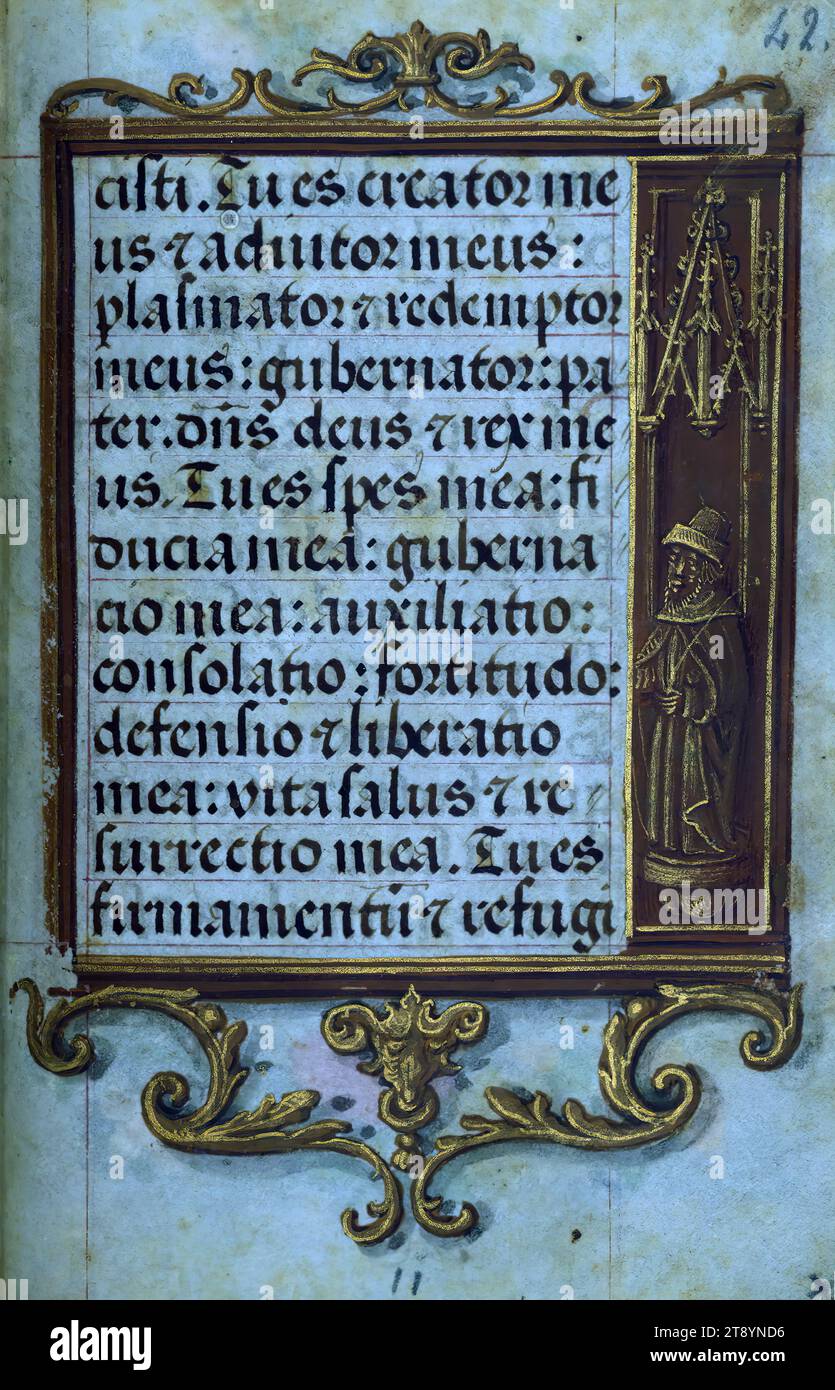 42.
cisti. Tu es creator me
us ⁊ adiutor meus:
plasmator ⁊ redemptor
meus: gubernator: pa
ter. dn̄s deus ⁊ rex me
us. Tu es spes mea: fi
ducia mea: guberna
cio mea: auxiliatio:
consolatio: fortitudo:
defensio ⁊ liberatio
mea: vita salus ⁊ re
surrectio mea. Tu es
firmamentū ⁊ refugi
11
alamy
Image ID: 2T8YND6
www.alamy.com